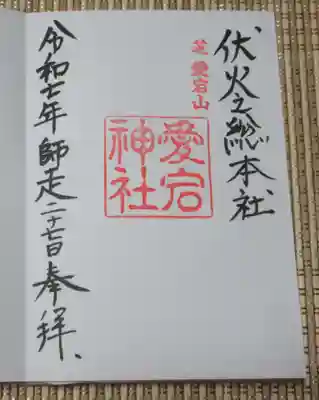 伏火之総本社
芝 愛宕山
愛宕
神社
令和七年師走二十七日奉拝、